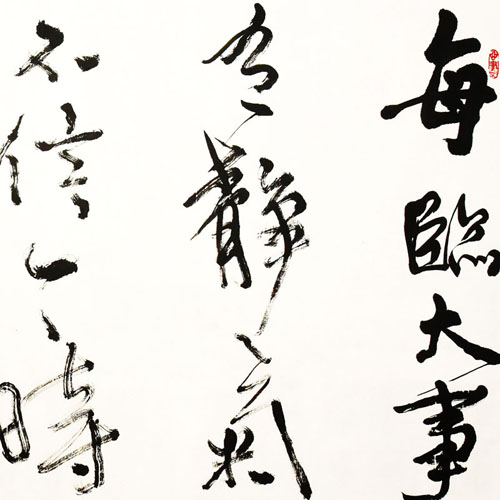 每臨大事
有靜氣
不信今時